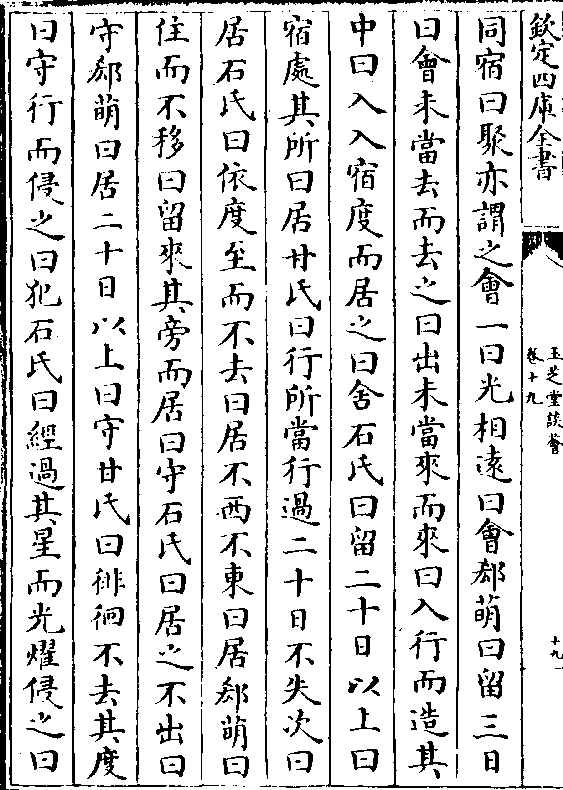 欽定四庫全書
玉芝堂談薈
卷十九
十九
同宿曰聚亦謂之會一曰光相遠曰會郄萌曰留三日
曰會未當去而去之曰出未當來而來曰入行而造其
中曰入入宿度而居之曰舍石氏曰留二十日以上曰
宿處其所曰居甘氏曰行所當行過二十日不失次曰
居石氏曰依度至而不去曰居不西不東曰居郄萌曰
住而不移曰留來其旁而居曰守石氏曰居之不出曰
守郄萌曰居二十日以上曰守甘氏曰徘徊不去其度
曰守行而侵之曰犯石氏曰經過其星而光耀侵之曰